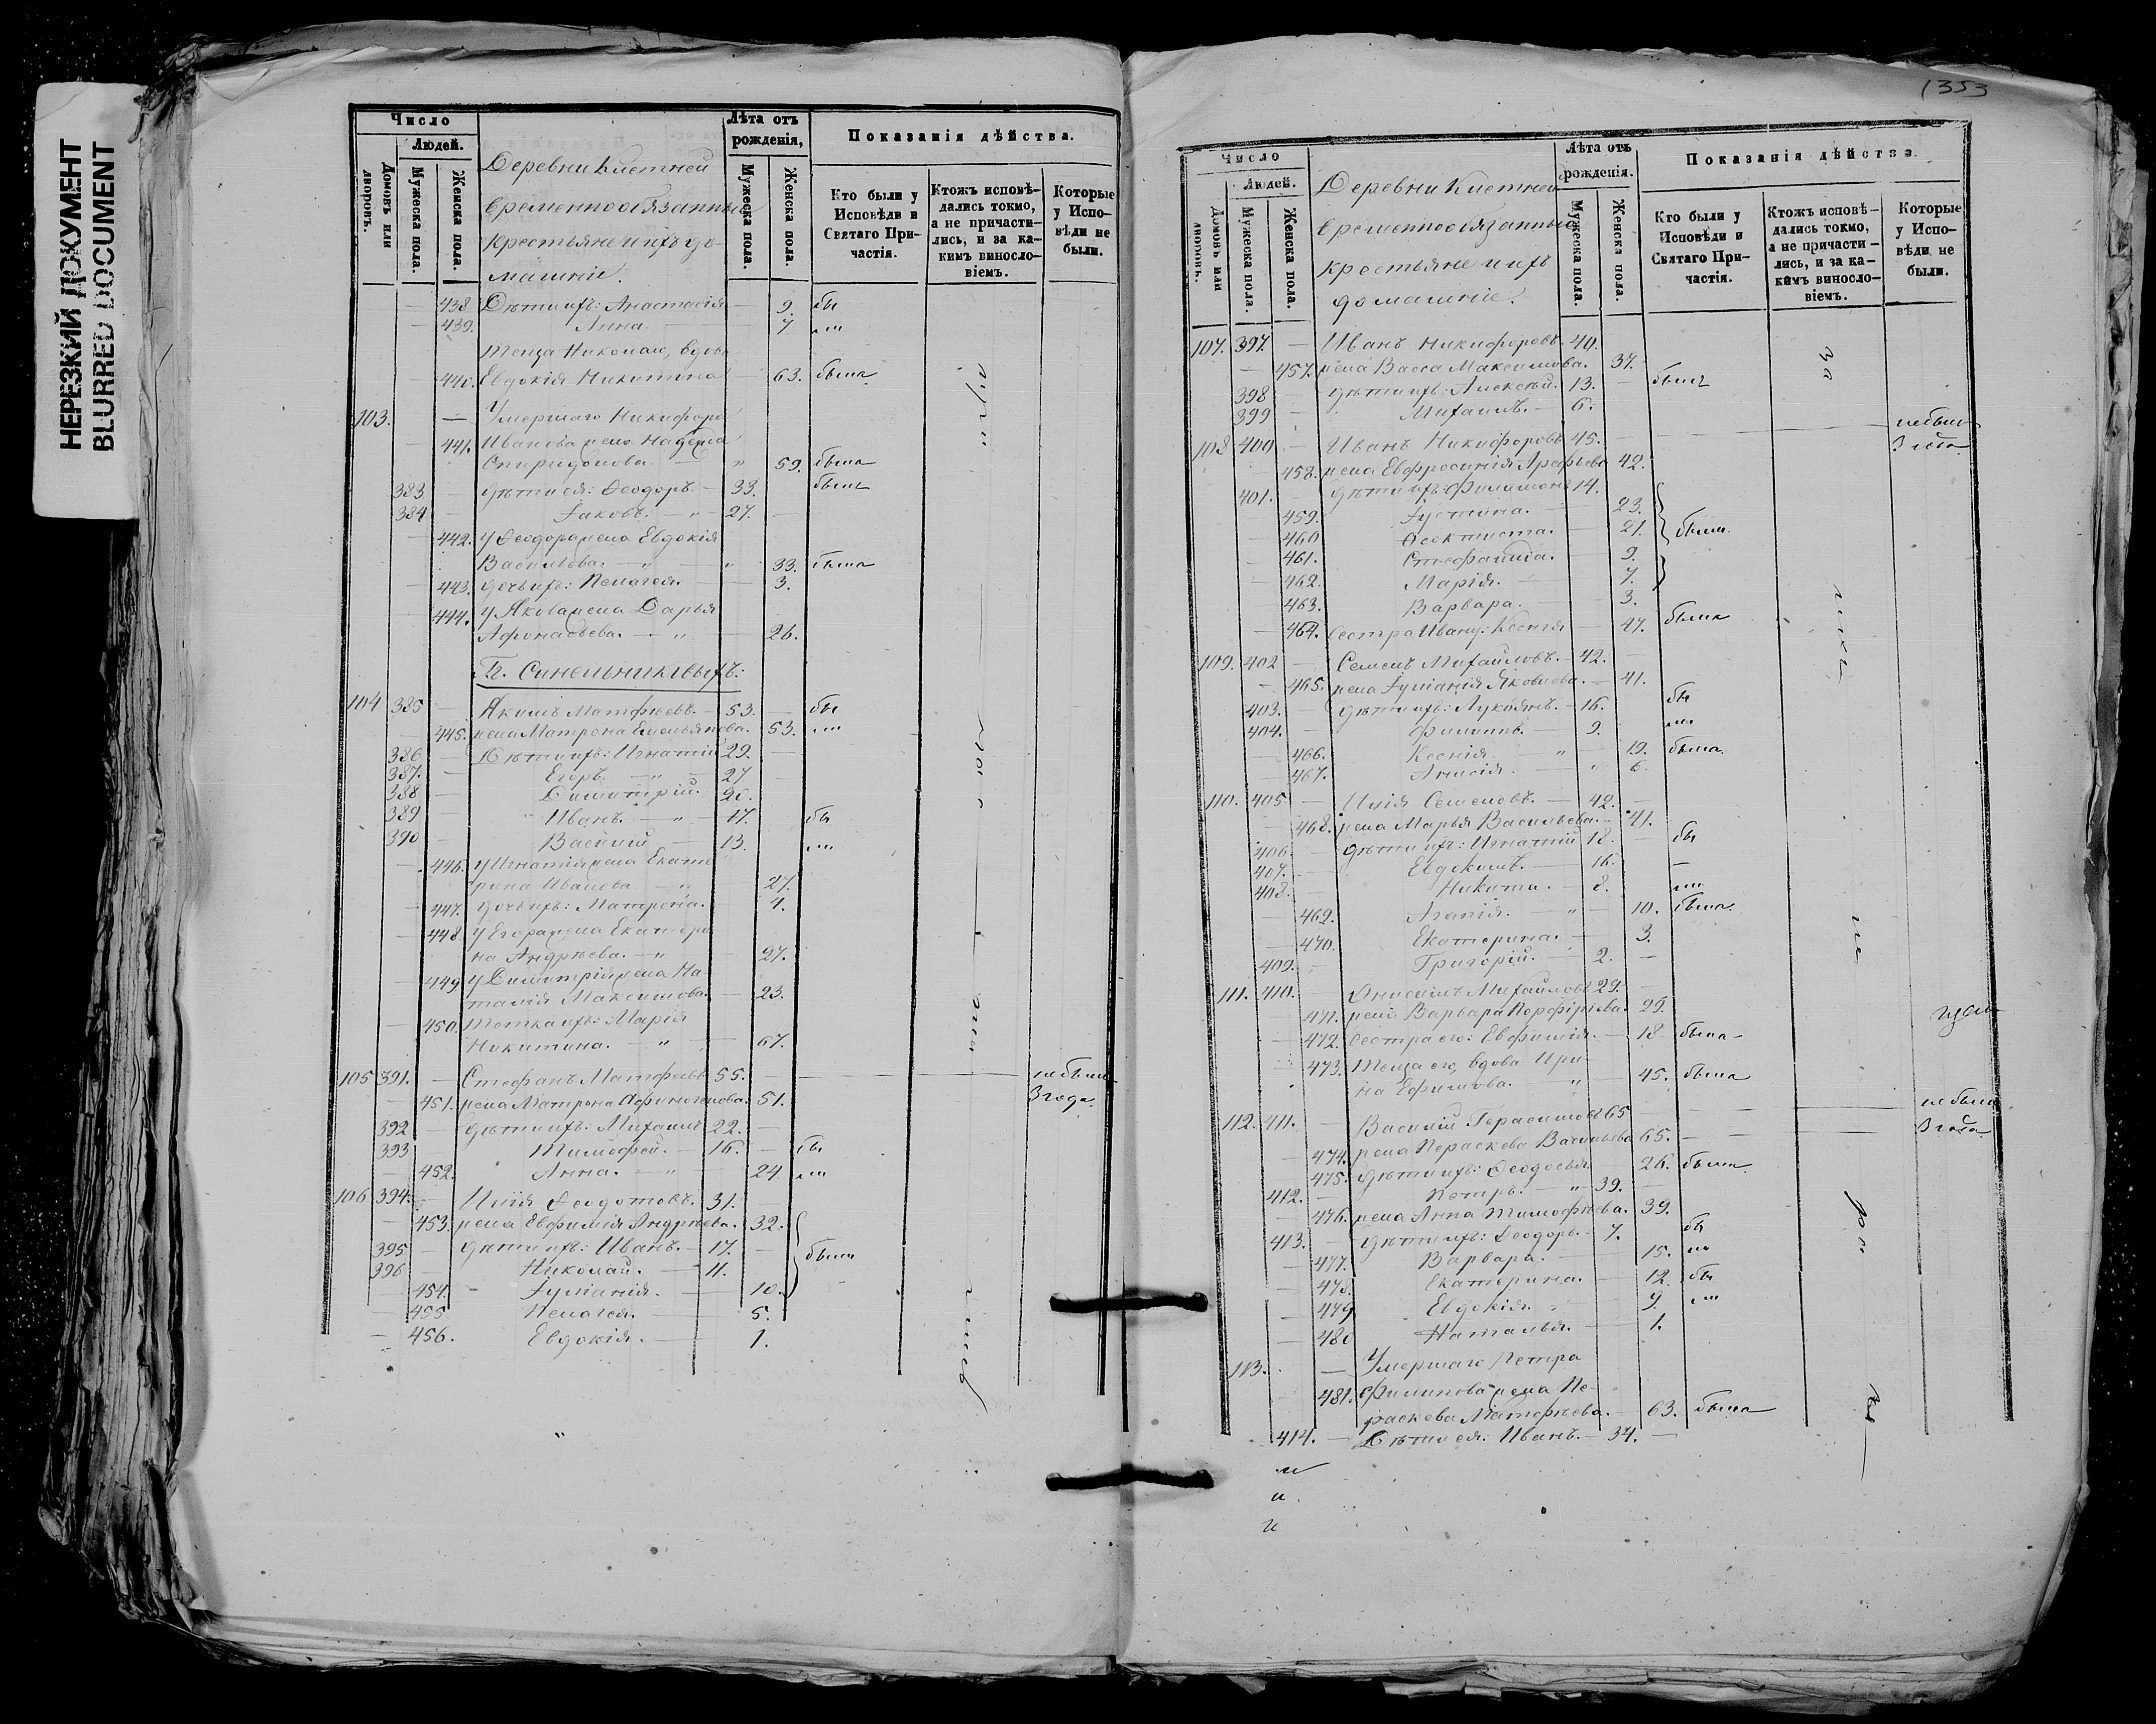 НЕРЕЗКИЙ ДОКУМЕНТ
BLURRED DOCUMENT
Число
Людей.
Домовъ или дворовъ.
Мужеска пола.
Женска пола.
Деревни Клетней
временнообязанные
крестьяне и ихъ до-
машніе.
Лѣта отъ рожденія,
Мужеска пола.
Женска пола.
Показанія дѣйства.
Кто были у Исповѣди и Святаго При-частія.
Ктожъ исповѣ-дались токмо, а не причасти-лись, и за ка-кимъ винословіемъ.
Которые у Испо-вѣди не были.
438 Дѣти ихъ: Анастасія — 9. бы
439. Анна — 7 ли
Теща Николаю, вдова
440. Евдокія Никитина 63. была
103. — Умершаго Никифора
441. Иванова жена Надежда
Спиридонова — " 59. была
383 — дѣти ея: Ѳеодоръ — 33. былъ
384 — Іаковъ. — " — 27. —
442. У Ѳеодора жена Евдокія
Васильева. — " — " 33. была
443. дочь ихъ: Пелагея. — 3.
444. У Якова жена Дарья
Афонасьева. — " — 26.
Гг. Синельниковыхъ:
104 385 — Акимъ Матфѣевъ. — 53. — бы
445. жена Матрона Емельянова. 53. ли
386 — Дѣти ихъ: Игнатій 29.
387. — Егоръ. — " — 27
388 — Димитрій. 20.
389 — Иванъ. — " — 17. бы
390 — Василій — 13. ли
446. У Игнатія жена Екате
рина Иванова — " 27.
447. дочь ихъ: Матрона. — 4.
448 У Егора жена Екатери
на Андрѣева. — " 27.
449 У Димитрія жена На
талія Максимова. — 23.
450. Тетка ихъ: Марія
Никитина. — " — 67.
105 391. — Стефанъ Матфѣевъ 55. — не былъ
451. жена Матрона Афиногенова. 51. 3 года.
392 — дѣти ихъ: Михаилъ 22. —
393 Тимофей. — 16. — бы
452. Анна. — " 24 ли
106 394. — Илія Ѳеодотовъ. 31. —
453. жена Евфимія Андрѣева. 32.
395 — дѣти ихъ: Иванъ. — 17. — были
396 Николай. — 11.
454. Іуліанія. — 10.
455. Пелагея. — 5.
456. Евдокія. — 1.
1353
Число
Людей.
Домовъ или дворовъ.
Мужеска пола.
Женска пола.
Деревни Клетней
временнообязанные
крестьяне и ихъ
домашніе.
Лѣта отъ рожденія.
Мужеска пола.
Женска пола.
Показанія дѣйства.
Кто были у Исповѣди и Святаго При-частія.
Ктожъ исповѣ-дались токмо, а не причасти-лись, и за ка-кимъ винословіемъ.
Которые у Испо-вѣди не были.
107. 397. — Иванъ Никифоровъ 40.
457. жена Васса Максимова. 37.
398 — дѣти ихъ: Алексѣй. 13. — былъ
399 — Михаилъ. — 6.
108 400 — Иванъ Никифоровъ 45. — не былъ
458. жена Евфросинія Арефьева 42. 3 года
401. — дѣти ихъ: Филимонъ 14.
459. Іустина. — 23.
460 Ѳеоктиста. — 21. были
461. Стефанида. — 9.
462. Марія. — 7.
463. Варвара. — 3.
464. Сестра Ивану: Ксенія — 47. была
109. 402 — Семенъ Михайловъ. — 42. —
465. жена Іуліанія Яковлева. — 41.
403. — дѣти ихъ: Лукіянъ. — 16. бы
404. — Филиппъ. — 9. ли
466. Ксенія — " — 19. была.
467. Анисія. — " 6.
110. 405 — Илія Семеновъ. — 42. —
468. жена Марья Васильева. — 41.
406. — дѣти ихъ: Игнатій 18. — бы
407. — Евдокимъ. — 16. —
408. — Никита. — 8. ли
469. Агапія. — " — 10. была.
470. Екатерина. — 3.
409. Григорій. — 2. —
111. 410. — Онисимъ Михайловъ 29. —
471. жена Варвара Порфирьева. 29.
472. Сестра его: Евфимія. — 18 была
473. Теща его, вдова Ири-
на Ефимова. " — 45. была
112. 411. — Василій Герасимовъ 65 — не были
474. жена Параскева Васильева 65. — 3 года
475. Дѣти ихъ: Ѳеодосья. 26. была
412. — Петръ. — " 39. —
476. жена Анна Тимофѣева. 39.
413. — дѣти ихъ: Ѳеодоръ. 7. бы
477. Варвара. — 15. ли
478. Екатерина. — 12. бы
479 Евдокія. " 9. ли
480 Наталья. — 1.
113. — Умершаго Петра
481. Филипова жена Па-
раскева Матфѣева. — 63. была
414. — Дѣти ея: Иванъ. — 34. —